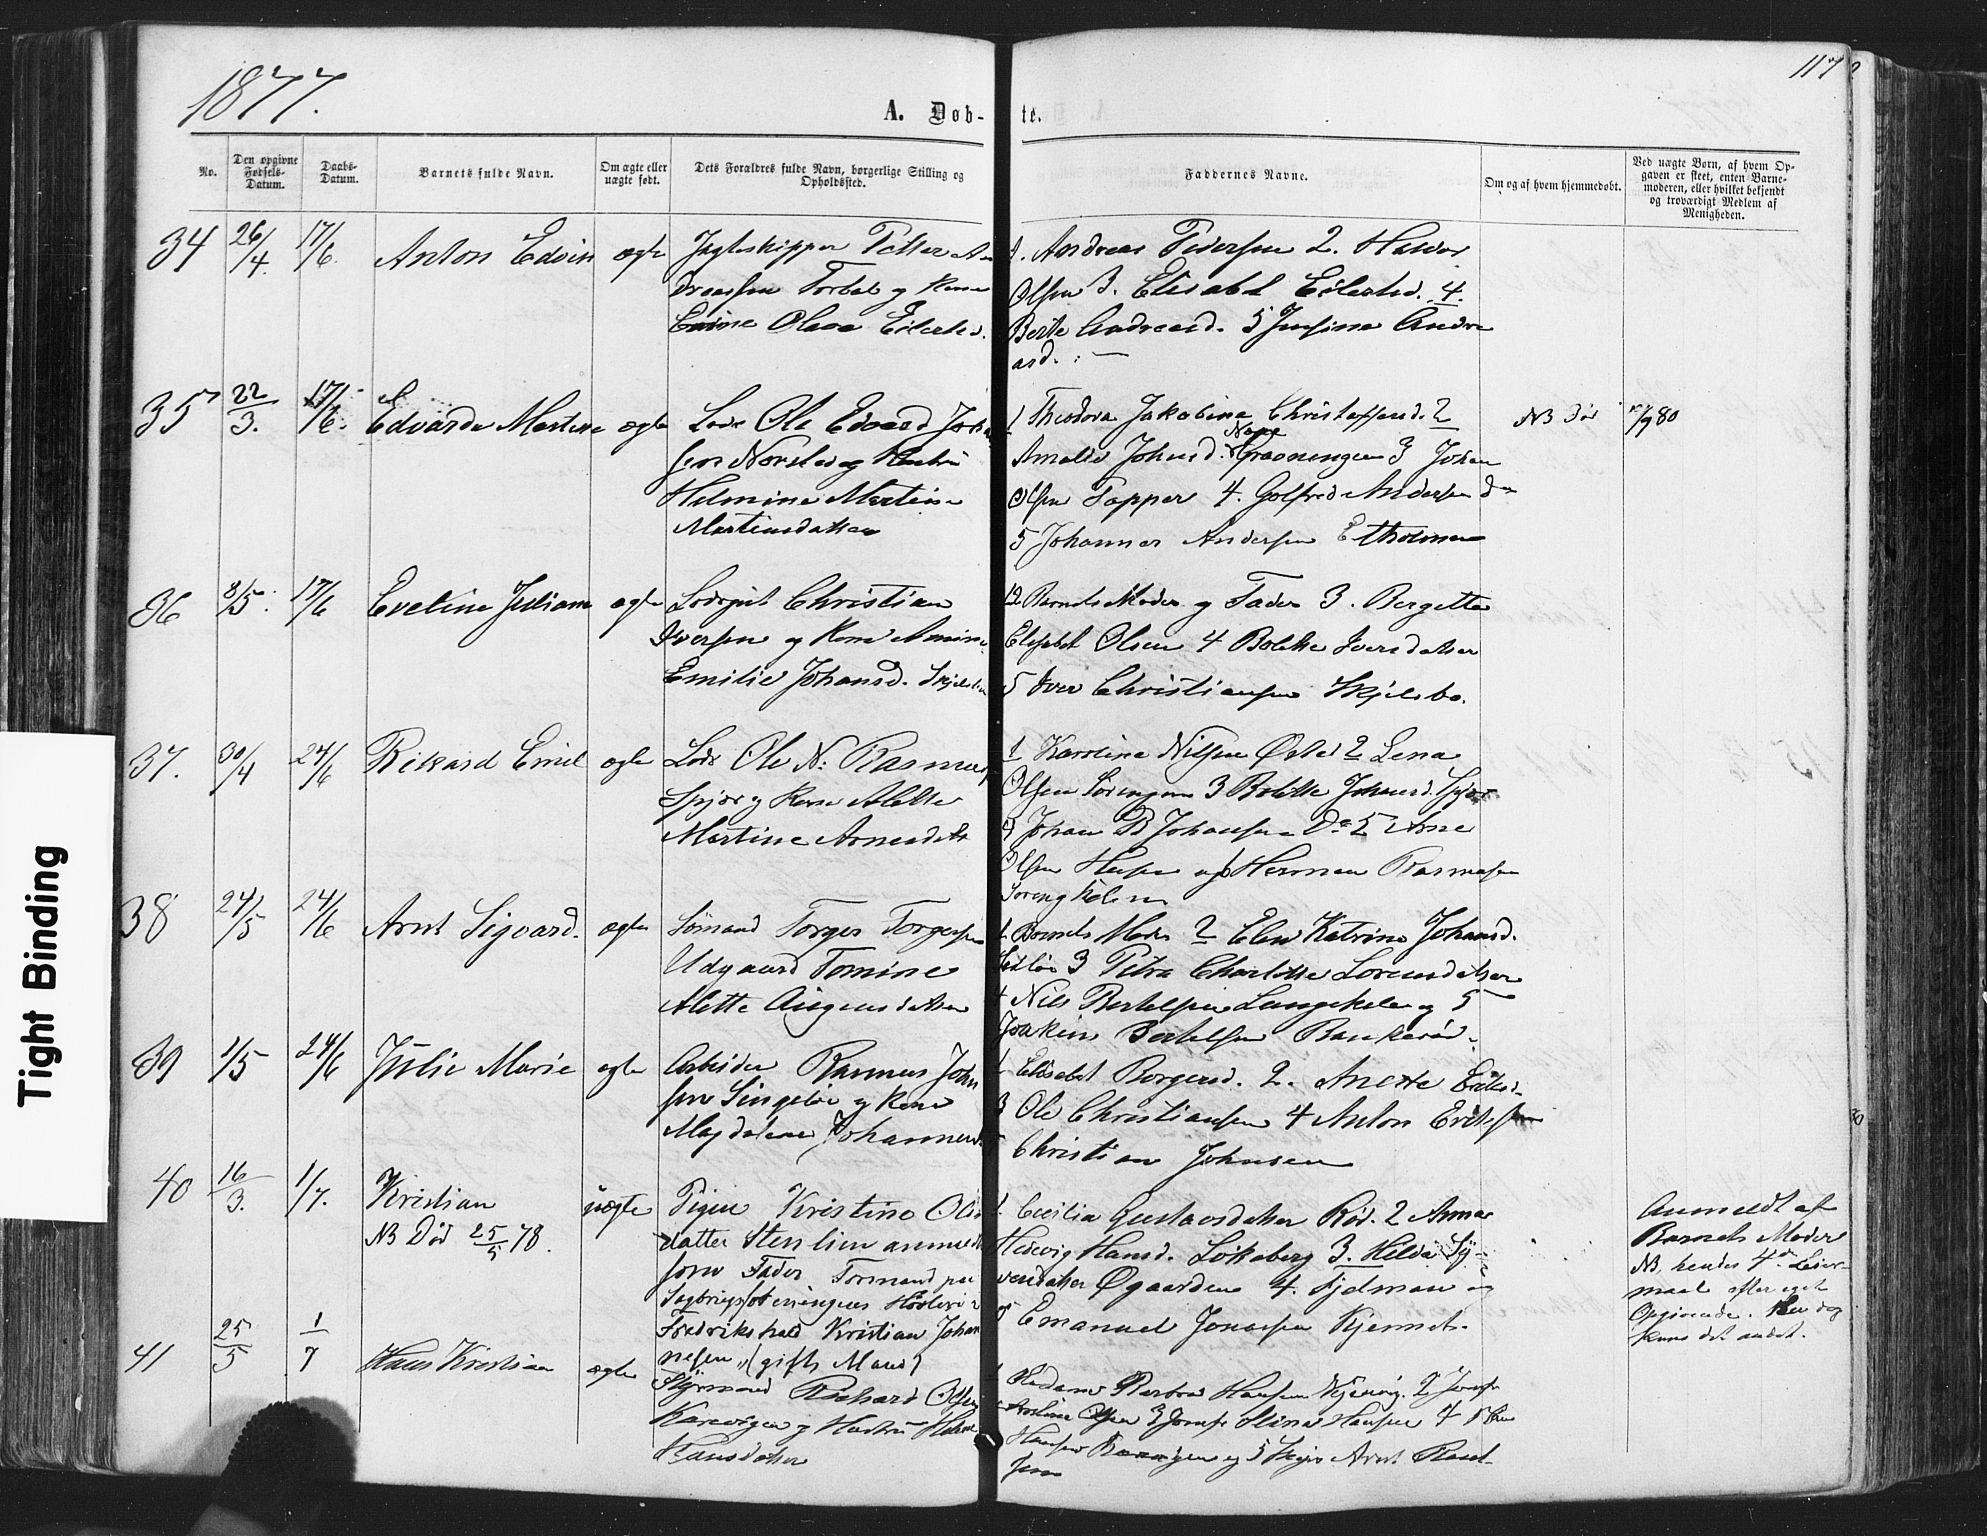 1877.
117
A. Døb-
te.
No.
Den opgivne Fødsels-Datum.
Daabs-Datum.
Barnets fulde Navn.
Om ægte eller uægte født.
Dets Forældres fulde Navn, borgerlige Stilling og Opholdssted.
Faddernes Navne.
Om og af hvem hjemmedøbt.
Ved uægte Børn, af hvem Opgaven er skeet, enten Barnemoderen, eller hvilket bekjendt og troværdigt Medlem af Menigheden.
34 26/4. 17/6. Anton Edvin ægte
Jagteskipper Petter An
dreassen Torbal og Kone
Olava Eilertsd.
1. Andreas Pedersen 2. Halvor
Olsen 3. Elisabet Eilertsd. 4.
Berte Andreasd. 5 Josefine Andre
asd.
35 22/3. 17/6. Edvarda Martine ægte
Lods Ole Edvard Joha
sen Norsted og Hustru
Helmine Martine
Martinsdatter
1 Theodora Jakobine Christoffersd. 2
Amalie Johnsd. Grønningen 3 Johan
Olsen Topper 4. Golfred Andersen do
5 Johannes Andersen Etholmen
NB Død /9 80
36 8/5. 17/6 Eveline Juliane ægte
Lodsgut Christian
Iversen og Kone
Emilie Johansd.
12 Barnets Moder og Fader 3. Bergette
Elisabet Olsen 4 Bolette Iversdatter
5 Iver Christiansen Skjelsbo.
37. 30/4 24/6 Rikard Emil ægte
Lods Ole N. Rasmuss
Spjær og Kone Alette
Martine Arnesdatt
1 Karoline Nilsen Ørsted 2 Lena
Olsen 3 Bolette Johansd. Spjær
4 Johan B Johansen Do 5 Arne
Olsen og Herman Rasmusen
38 24/5 24/6 Arnt Sigvard. ægte
Sømand Torger Torgersen
Udgaard Tomine
Alette
1 Barnets Moder 2 Elen Katrine Johansd.
3 Petra Charlotte Lorensdatter
4 Nils Bertelsen Langekilen og 5
Joakim Bertelsen Bankerød.
39 1/5 24/6 Julie Marie ægte
Arbeider Rasmus John
sen Singeløe og Kone
Magdalene Johannesd
1 Elisabet Borgersd. 2. Anette
3 Ole Christiansen 4 Anton Eriksen
Christian Johnsen
40 16/3. 1/7. Kristian uægte
NB Død 25/5 78.
Pigen Kristine Ols
datter Stenlien anmeldt
som Fader Formand paa
Fredrikshald Kristian Johan
nesen, (gift Mand)
1. Cecilia Gustavsdatter Rød. 2 Anna
Hedevig Hansd. Løkeberg 3. Hilda Sy-
versdatter Øgaarden 4. Hjelman og
5 Emanuel Jonassen Kjennet.
Anmeldt af
Barnets Moder
NB. hendes 4de Leier-
maal efter eget
Opgivende. Her dog
kuns det andet.
41 25/5 1/7 Hans Kristian ægte
Styrmand Richard Olsen
og Hustru
Hansdatter
Madame Barbra Hansen 2 Jomfr
Olsen 3 Jomfr Stina Hansen 4
Hansen og 5 Arnt
sen
Tight Binding